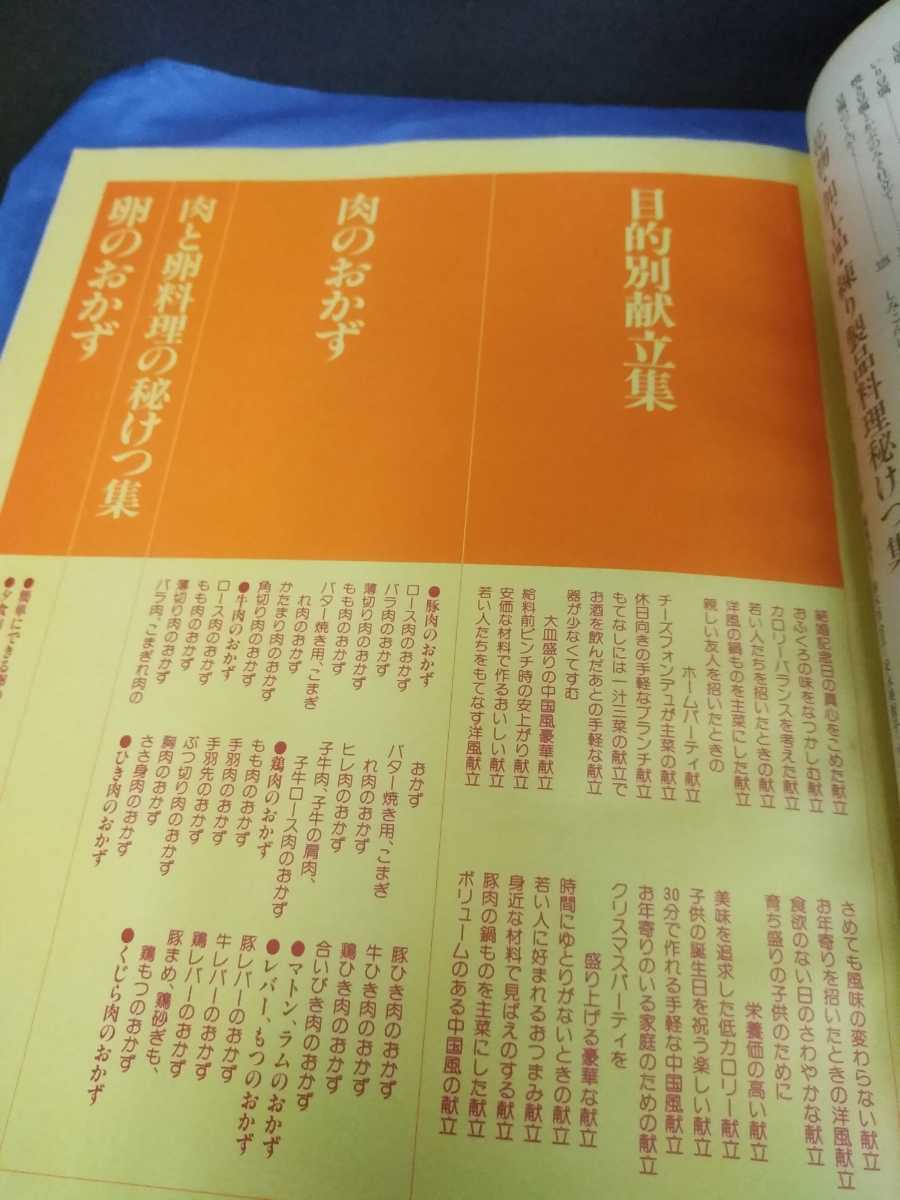 練り製品料理秘けつ集
目的別献立集
結婚記念日の真心をこめた献立
おふくろの味をなつかしむ献立
カロリーバランスを考えた献立
若い人たちを招いたときの献立
洋風の鍋ものを主菜にした献立
親しい友人を招いたときの
ホームパーティ献立
チーズフォンデュが主菜の献立
休日向きの手軽なブランチ献立
もてなしには一汁三菜の献立で
お酒を飲んだあとの手軽な献立
器が少なくてすむ
大皿盛りの中国風豪華献立
給料前ピンチ時の安上がり献立
安価な材料で作るおいしい献立
若い人たちをもてなす洋風献立
さめても風味の変わらない献立
お年寄りを招いたときの洋風献立
食欲のない日のさわやかな献立
育ち盛りの子供のために
栄養価の高い献立
美味を追求した低カロリー献立
子供の誕生日を祝う楽しい献立
30分で作れる手軽な中国風献立
お年寄りのいる家庭のための献立
クリスマスパーティを
盛り上げる豪華な献立
時間にゆとりがないときの献立
若い人に好まれるおつまみ献立
身近な材料で見ばえのする献立
豚肉の鍋ものを主菜にした献立
ボリュームのある中国風の献立
肉のおかず
●豚肉のおかず
ロース肉のおかず
バラ肉のおかず
薄切り肉のおかず
もも肉のおかず
バター焼き用、こまぎ
れ肉のおかず
かたまり肉のおかず
角切り肉のおかず
●牛肉のおかず
ロース肉のおかず
もも肉のおかず
薄切り肉のおかず
バラ肉、こまぎれ肉の
おかず
バター焼き用、こまぎ
れ肉のおかず
ヒレ肉のおかず
子牛肉、子牛の肩肉、
子牛ロース肉のおかず
●鶏肉のおかず
もも肉のおかず
手羽肉のおかず
手羽先のおかず
ぶつ切り肉のおかず
胸肉のおかず
ささ身肉のおかず
●ひき肉のおかず
豚ひき肉のおかず
牛ひき肉のおかず
鶏ひき肉のおかず
合いびき肉のおかず
●マトン、ラムのおかず
●レバー、もつのおかず
豚レバーのおかず
牛レバーのおかず
鶏レバーのおかず
豚まめ、鶏砂ぎも、
鶏もつのおかず
●くじら肉のおかず
肉と卵料理の秘けつ集
卵のおかず
●簡単にできる
●夕食